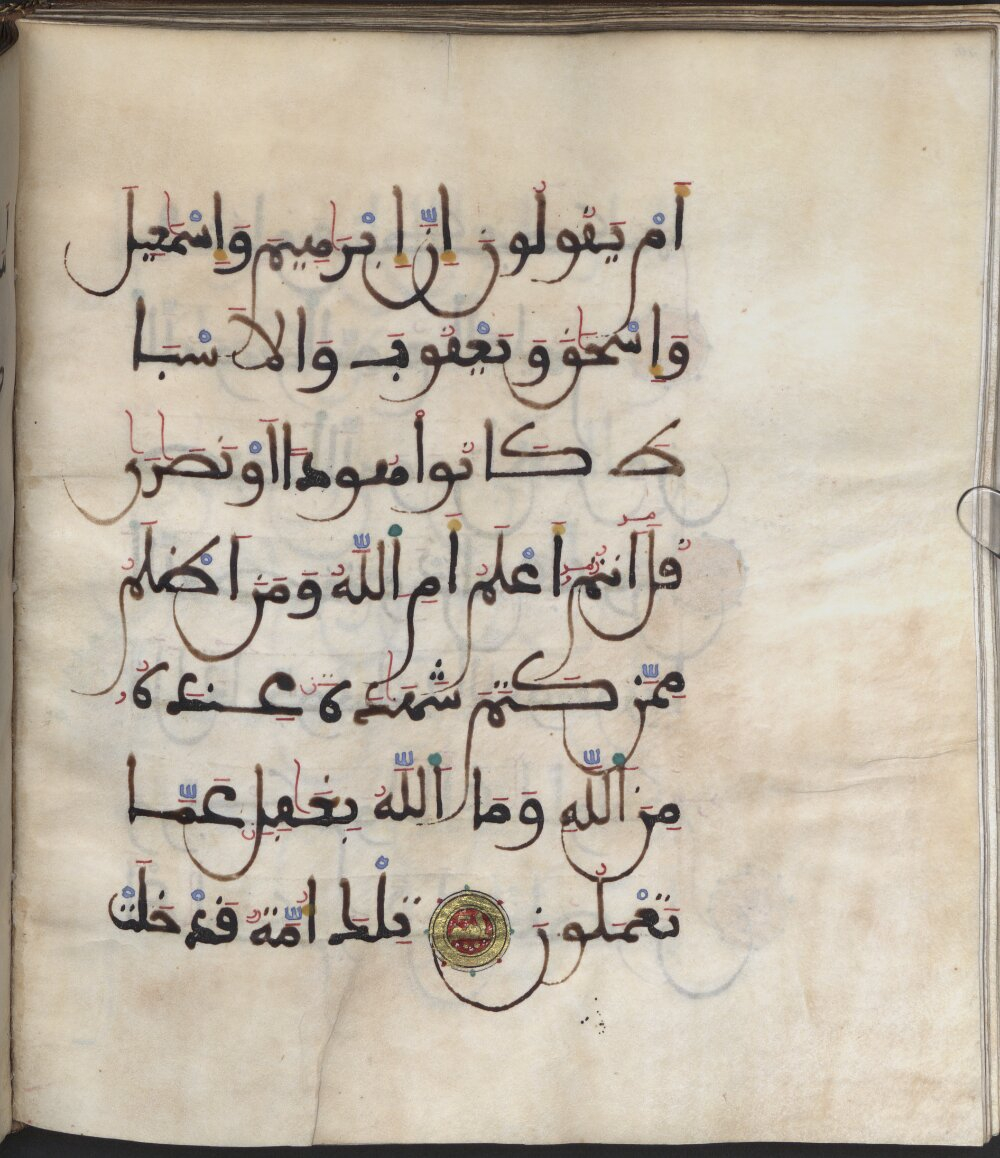 أَمْ يَقُولُونَ إِنَّ إِبْرَٰهِيمَ وَإِسْمَٰعِيلَ
وَإِسْحَٰقَ وَيَعْقُوبَ وَالَاسْبَا
طَ كَانُوا هُودًا اَوْ نَصَٰرَىٰ
قُلَ انتُمُ أَعْلَمُ أَمِ اللَّهُ وَمَنَ اظْلَمُ
مِمَّن كَتَمَ شَهَٰدَةً عِندَهُ
مِنَ اللَّهِ وَمَا اللَّهُ بِغَٰفِلٍ عَمَّا
تَعْمَلُونَ تِلْكَ أُمَّةٌ قَدْ خَلَتْ